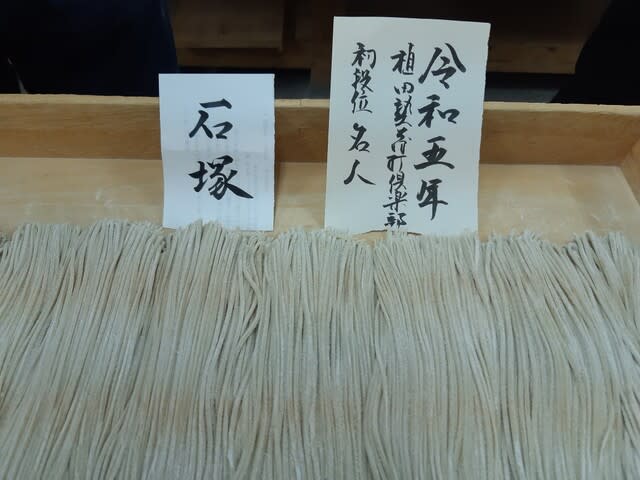 令和五年
植田塾そば打倶楽部
初段位 名人
石塚